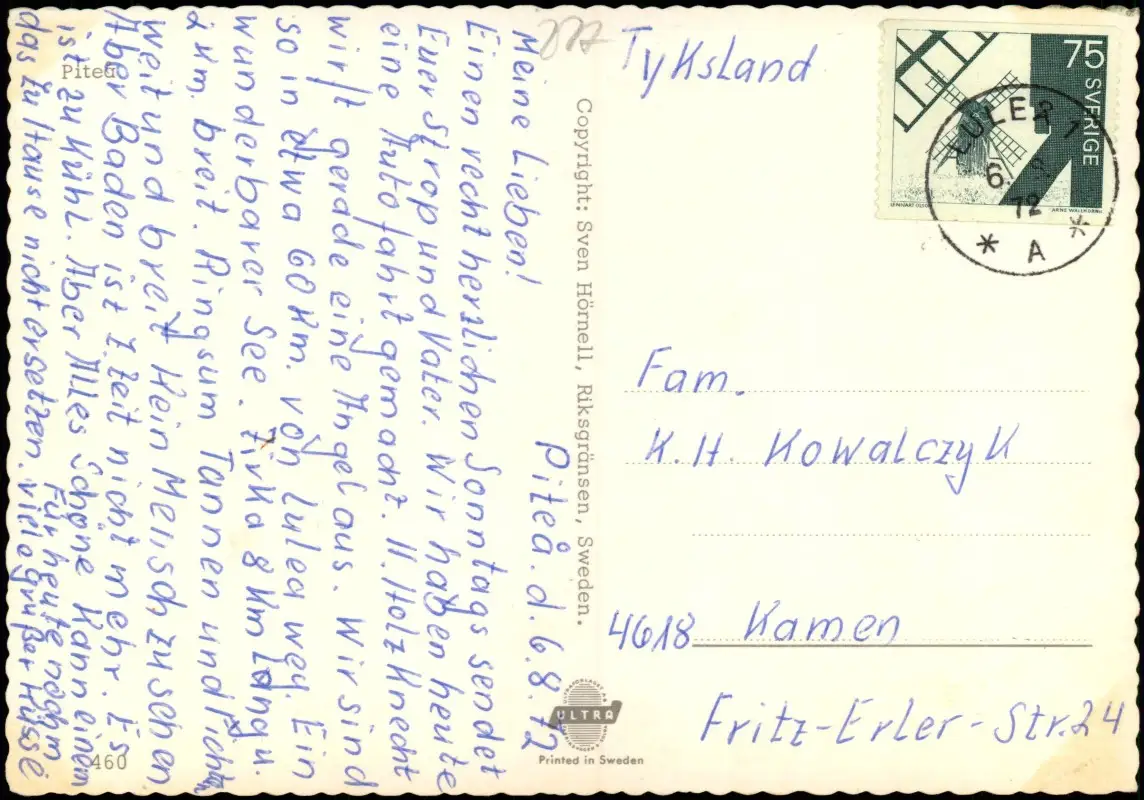 Piteå. d. 6.8.72
Meine Lieben!
Einen recht herzlichen Sonntags sendet
Euer Strop und Vater. Wir haben heute
eine Autofahrt gemacht. H. Holzknecht
wirft gerade eine Angel aus. Wir sind
so in etwa 60 Km. von Lulea weg. Ein
wunderbarer See. Zirka 8 Km Lang u.
2 Km. breit. Ringsum Tannen und Fichten
weit und breit Kein Mensch zu sehen
Aber Baden ist z. Zeit nicht mehr. Es
ist zu Kühl. Aber Alles Schöne Kann einem
das zu Hause nicht ersetzen.
Für heute
viele grüße u Küsse
Piteå
460
Copyright: Sven Hörnell, Riksgränsen, Sweden.
ULTRA
Printed in Sweden
Tyksland
75 SVERIGE
LENNART OLSON
ARNE WALLHORN
LULEÅ 1
6. 8.
72
* A *
Fam.
K. H. Kowalczyk
4618 Kamen
Fritz-Erler-Str. 24